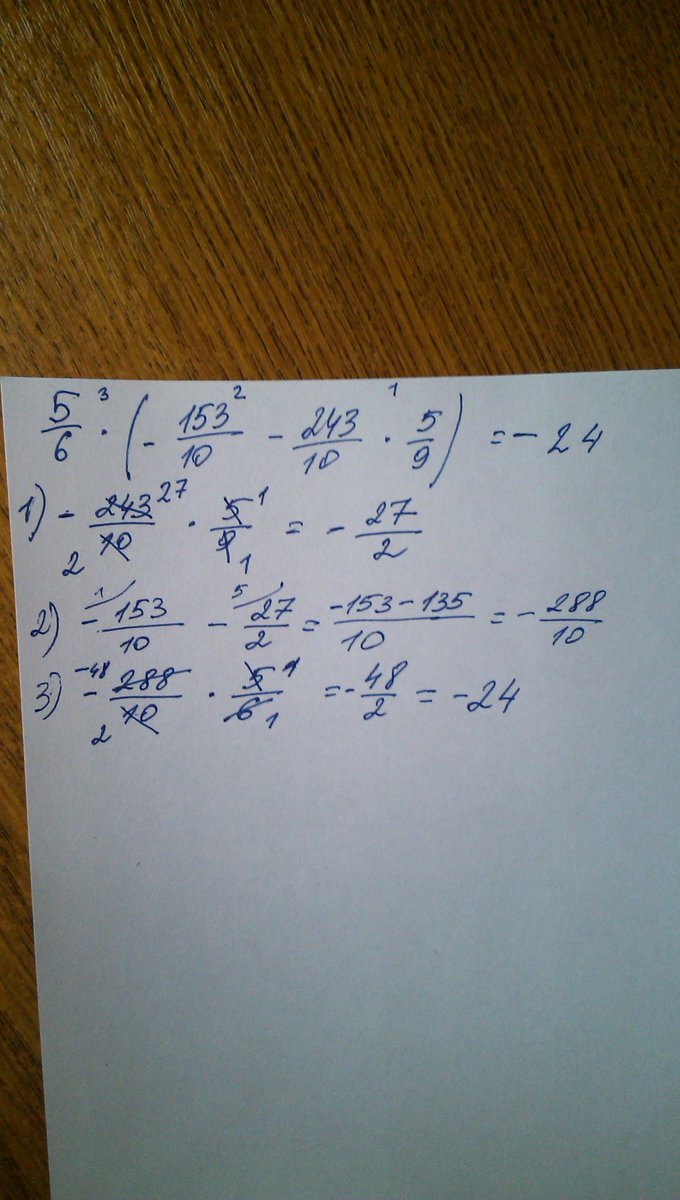 5/6 ·³ (- 153/10 -² 243/10 ·¹ 5/9) = - 24
1) - 243 27/10 2 · 5 1/9 1 = - 27/2
2) - 153/10 - 27/2 = -153-135/10 = - 288/10
3) - 288 -48/10 2 · 5 1/6 1 = - 48/2 = -24